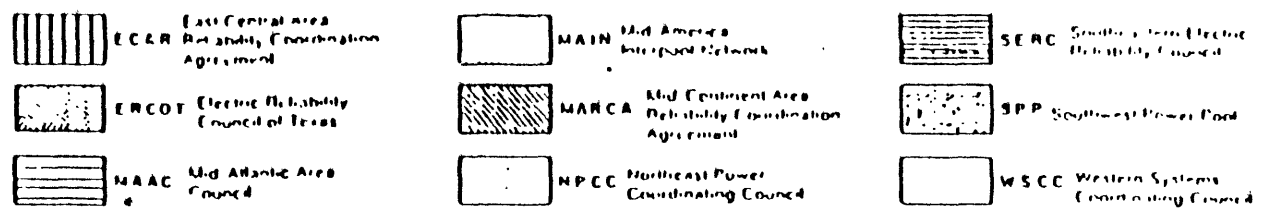 ECAR East Central Area
Reliability Coordination
Agreement
ERCOT Electric Reliability
Council of Texas
MAAC Mid Atlantic Area
Council
MAIN Mid America
Interpool Network
MARCA Mid Continent Area
Reliability Coordination
Agreement
NPCC Northeast Power
Coordinating Council
SERC Southeastern Electric
Reliability Council
SPP Southwest Power Pool
WSCC Western Systems
Coordinating Council